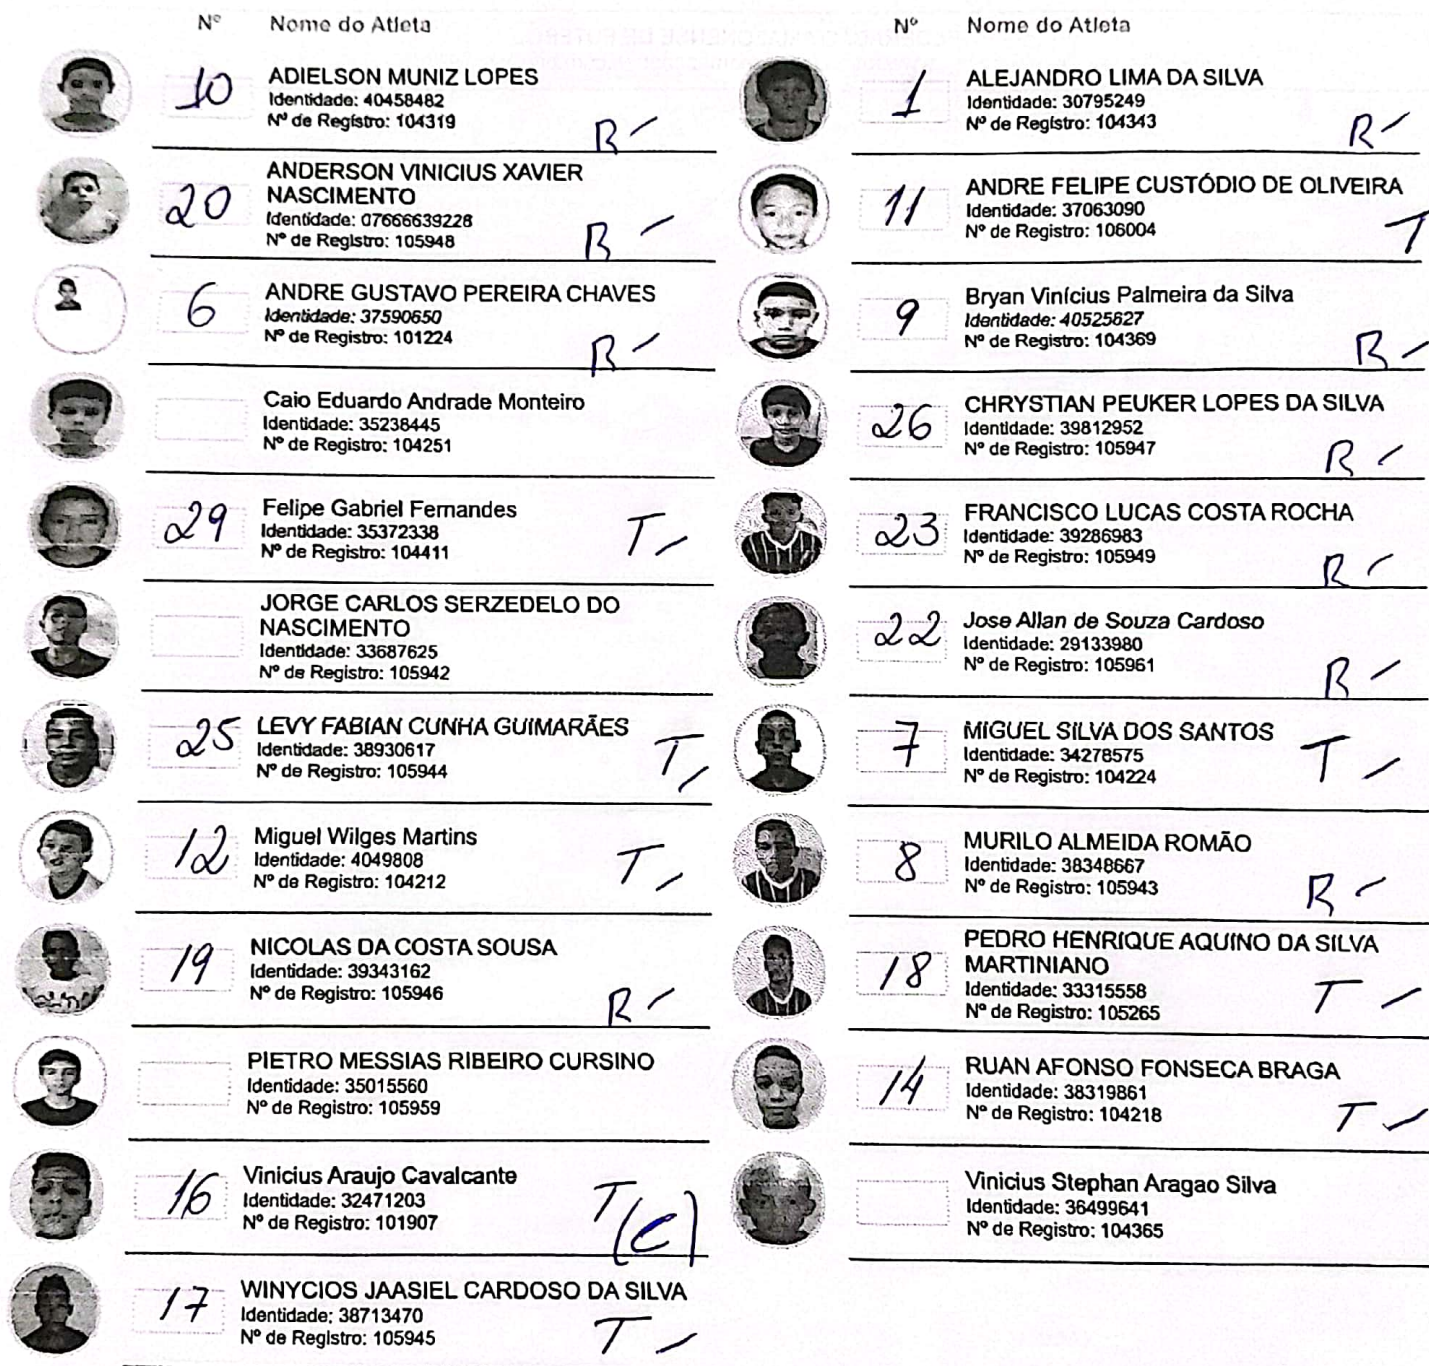 Nº Nome do Atleta
10 ADIELSON MUNIZ LOPES
Identidade: 40458482
Nº de Registro: 104319
R
20 ANDERSON VINICIUS XAVIER
NASCIMENTO
Identidade: 07666639228
Nº de Registro: 105948
R
6 ANDRE GUSTAVO PEREIRA CHAVES
Identidade: 37590650
Nº de Registro: 101224
R
Caio Eduardo Andrade Monteiro
Identidade: 35238445
Nº de Registro: 104251
29 Felipe Gabriel Fernandes
Identidade: 35372338
Nº de Registro: 104411
T
JORGE CARLOS SERZEDELO DO
NASCIMENTO
Identidade: 33687625
Nº de Registro: 105942
25 LEVY FABIAN CUNHA GUIMARÃES
Identidade: 38930617
Nº de Registro: 105944
T
12 Miguel Wilges Martins
Identidade: 4049808
Nº de Registro: 104212
T
19 NICOLAS DA COSTA SOUSA
Identidade: 39343162
Nº de Registro: 105946
R
PIETRO MESSIAS RIBEIRO CURSINO
Identidade: 35015560
Nº de Registro: 105959
16 Vinicius Araujo Cavalcante
Identidade: 32471203
Nº de Registro: 101907
T (C)
17 WINYCIOS JAASIEL CARDOSO DA SILVA
Identidade: 38713470
Nº de Registro: 105945
T
Nº Nome do Atleta
1 ALEJANDRO LIMA DA SILVA
Identidade: 30795249
Nº de Registro: 104343
R
11 ANDRE FELIPE CUSTÓDIO DE OLIVEIRA
Identidade: 37063090
Nº de Registro: 106004
T
9 Bryan Vinícius Palmeira da Silva
Identidade: 40525627
Nº de Registro: 104369
R
26 CHRYSTIAN PEUKER LOPES DA SILVA
Identidade: 39812952
Nº de Registro: 105947
R
23 FRANCISCO LUCAS COSTA ROCHA
Identidade: 39286983
Nº de Registro: 105949
R
22 Jose Allan de Souza Cardoso
Identidade: 29133980
Nº de Registro: 105961
R
7 MIGUEL SILVA DOS SANTOS
Identidade: 34278575
Nº de Registro: 104224
T
8 MURILO ALMEIDA ROMÃO
Identidade: 38348667
Nº de Registro: 105943
R
18 PEDRO HENRIQUE AQUINO DA SILVA
MARTINIANO
Identidade: 33315558
Nº de Registro: 105265
T
14 RUAN AFONSO FONSECA BRAGA
Identidade: 38319861
Nº de Registro: 104218
T
Vinicius Stephan Aragao Silva
Identidade: 36499641
Nº de Registro: 104365